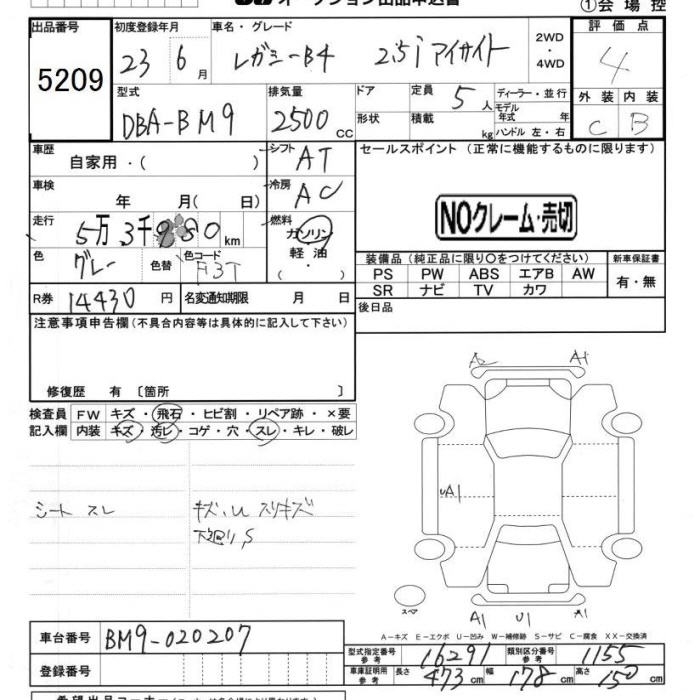 オークション出品申込書 ①会場控
出品番号 初度登録年月 車名・グレード 評価点
5209 23 6月 レガシーB4 2.5i アイサイト 2WD・4WD 4
型式 排気量 ドア 定員 5人 ディーラー・並行 外装 内装
DBA-BM9 2500cc 形状 積載 kg モデル年式 年 ハンドル 左・右 C B
車歴 自家用・( ) シフト AT セールスポイント (正常に機能するものに限ります)
車検 年 月( 日) 冷房 AC
NOクレーム・売切
走行 5万3千980km 燃料 ガソリン 軽油
色 グレー 色替 色コード F3T
装備品 (純正品に限り○をつけてください) 新車保証書
PS PW ABS エアB AW 有・無
SR ナビ TV カワ
R券 14430円 名変通知期限 月 日 後日品
注意事項申告欄(不具合内容等は具体的に記入して下さい)
修復歴 有 〔箇所 〕
検査員 FW キズ・飛石・ヒビ割・リペア跡・×要
記入欄 内装 キズ・汚レ・コゲ・穴・スレ・キレ・破レ
シート スレ キズ、U スリキズ
下廻り,S
A2 A1
UA1
スペア A1 U1 A1
A-キズ E-エクボ U-凹み W-補修跡 S-サビ C-腐食 XX-交換済
車台番号 BM9-020207
型式指定番号 参考 16291 類別区分番号 参考 1155
登録番号 車庫証明用 参考 長さ 473cm 幅 178cm 高さ 150cm